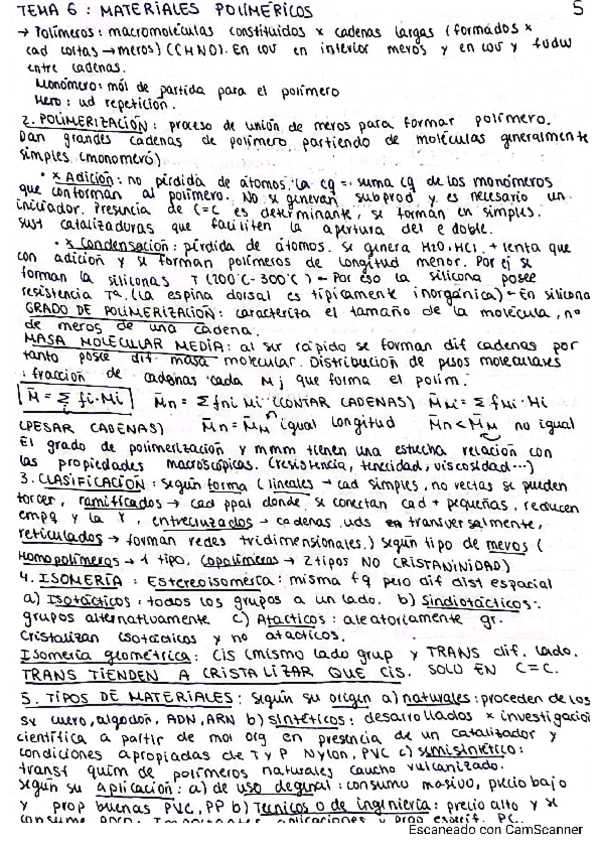 TEMA 6: MATERIALES POLIMÉRICOS 5
→ Polímeros: macromoléculas constituidos x cadenas largas (formados x
cad cortas → meros) (CHNO). En cov en interior meros y en cov y fvdw
entre cadenas.
Monómero: mól de partida para el polímero
Mero: ud repetición.
2. POLIMERIZACIÓN: proceso de unión de meros para formar polímero.
Dan grandes cadenas de polímero partiendo de moléculas generalmente
simples (monomero).
• x Adición: no pérdida de átomos. La cq = suma cq de los monómeros
que conforman al polímero. No se generan subprod y es necesario un
iniciador. Presencia de C=C es determinante, se forman en simples.
sust catalizadoras que faciliten la apertura del e doble.
• x Condensación: pérdida de átomos. Se genera H2O, HCl. + lenta que
con adición y se forman polímeros de longitud menor. Por ej se
forman la siliconas T (200°C-300°C) - Por eso la silicona posee
resistencia Tª. (La espina dorsal es típicamente inorgánica) - En silicona
GRADO DE POLIMERIZACIÓN: caracteriza el tamaño de la molécula, nº
de meros de una cadena.
MASA MOLECULAR MEDIA: al ser rápido se forman dif cadenas por
tanto posee dif. masa molecular. Distribución de pesos moleculares
: fracción de cadenas cada M; que forma el polím.
M̄ = Σ fi·Mi M̄n = Σfni Mi (CONTAR CADENAS) M̄m = Σ fmi·Mi
(PESAR CADENAS) M̄n = M̄m igual longitud M̄n < M̄m no igual
El grado de polimerización y mmm tienen una estrecha relación con
las propiedades macroscópicas. (resistencia, tenacidad, viscosidad...)
3. CLASIFICACIÓN: según forma (lineales → cad simples, no rectas se pueden
torcer, ramificados → cad ppal donde se conectan cad + pequeñas, reducen
empq y la ρ, entrecruzados → cadenas uds transversalmente,
reticulados → forman redes tridimensionales.) según tipo de meros (
Homopolímeros → 1 tipo, copolímeros → 2 tipos NO CRISTANINIDAD)
4. ISOMERÍA: Estereoisomería: misma fq pero dif dist espacial
a) Isotácticos: todos los grupos a un lado. b) Sindiotácticos:
grupos alternativamente c) Atacticos: aleatoriamente gr.
Cristalizan isotácticos y no atacticos.
Isomería geométrica: CIS (mismo lado grup y TRANS dif. lado.
TRANS TIENDEN A CRISTALIZAR QUE CIS. SOLO EN C=C.
5. TIPOS DE MATERIALES: Según su origen a) naturales: proceden de los
sv cuero, algodón, ADN, ARN b) sintéticos: desarrollados x investigación
científica a partir de mol org en presencia de un catalizador y
condiciones apropiadas de T y P Nylon, PVC c) semisintético:
transf quím de polímeros naturales caucho vulcanizado.
Según su aplicación: a) de uso general: consumo masivo, precio bajo
y prop buenas PVC, PP b) Técnicos o de ingeniería: precio alto y se
consume poco. Importantes aplicaciones y prop específ. PC..
Escaneado con CamScanner